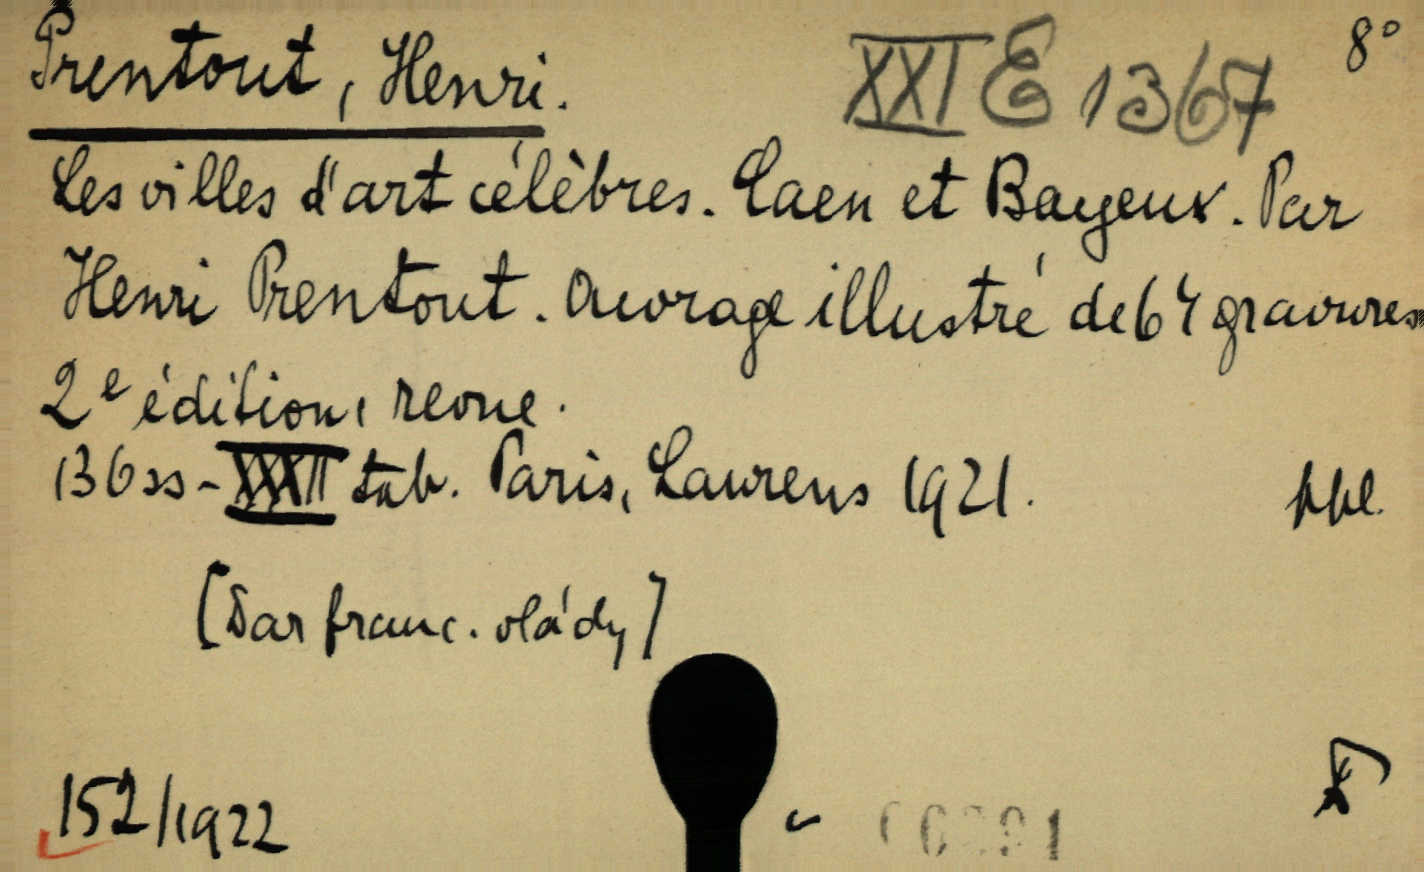 Prentout, Henri. XXI E 1367 8°
Les villes d'art célèbres. Caen et Bayeux. Par
Henri Prentout. Ouvrage illustré de 64 gravures
2e édition, revue.
136 ss - XXXII tab. Paris, Laurens 1921. ppl.
[Dar franc. vlády]
152/1922